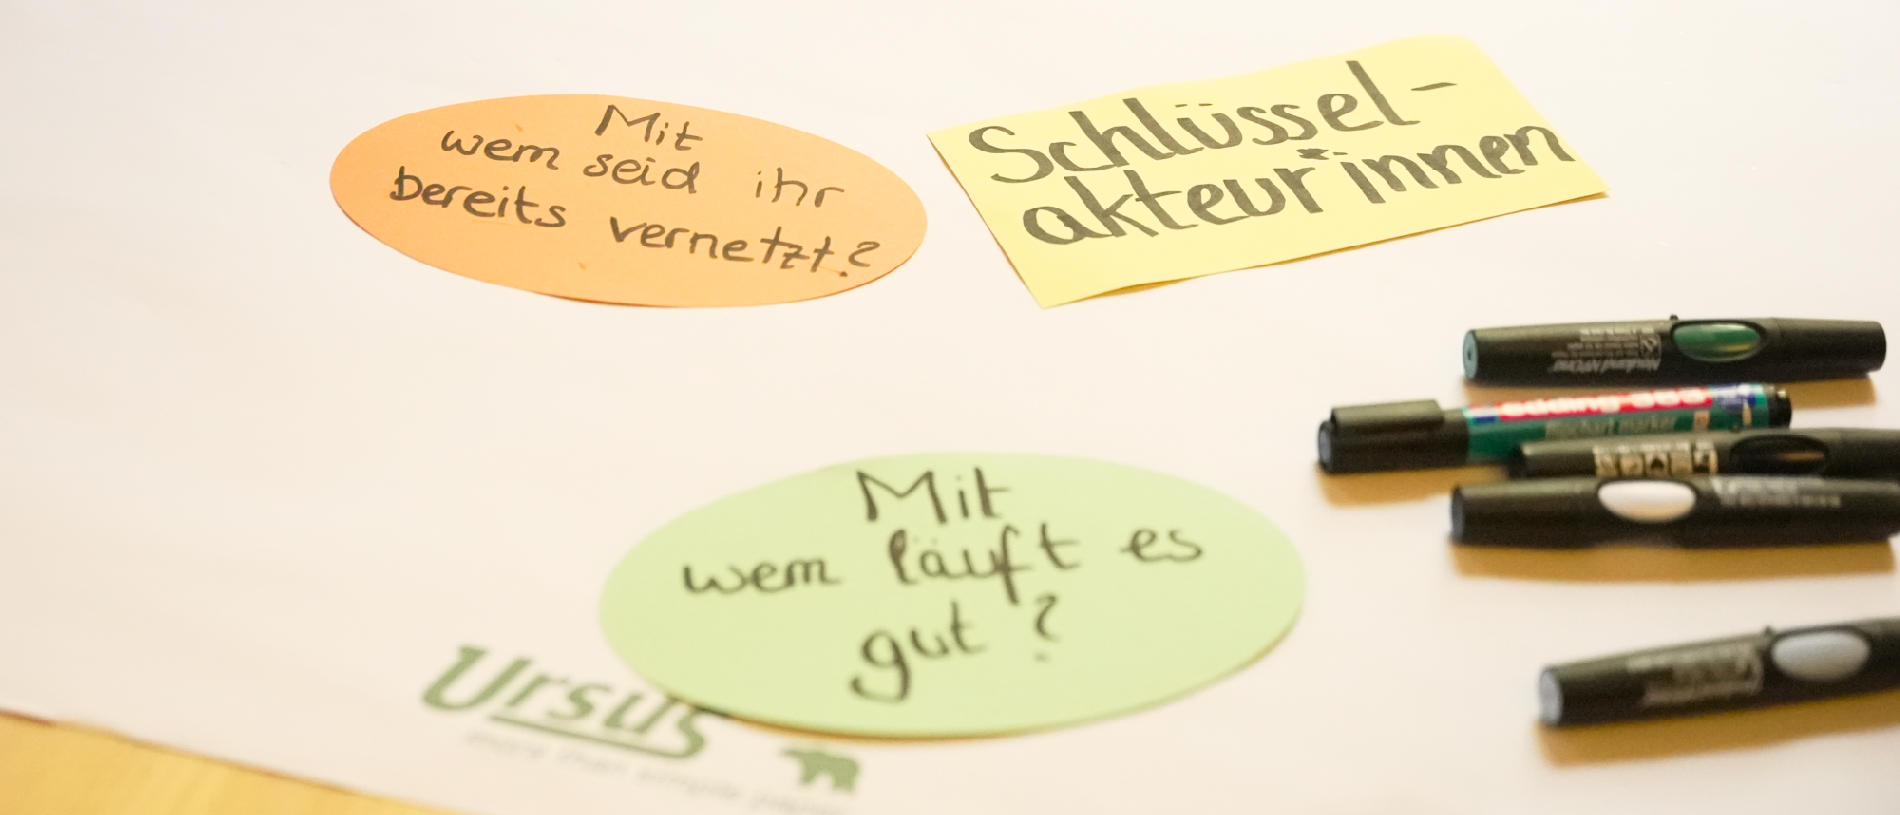 Mit
wem seid ihr
bereits vernetzt?
Schlüssel-
akteur*innen
Mit
wem läuft es
gut?
Ursus
more than simple paper
edding 383
flipchart marker